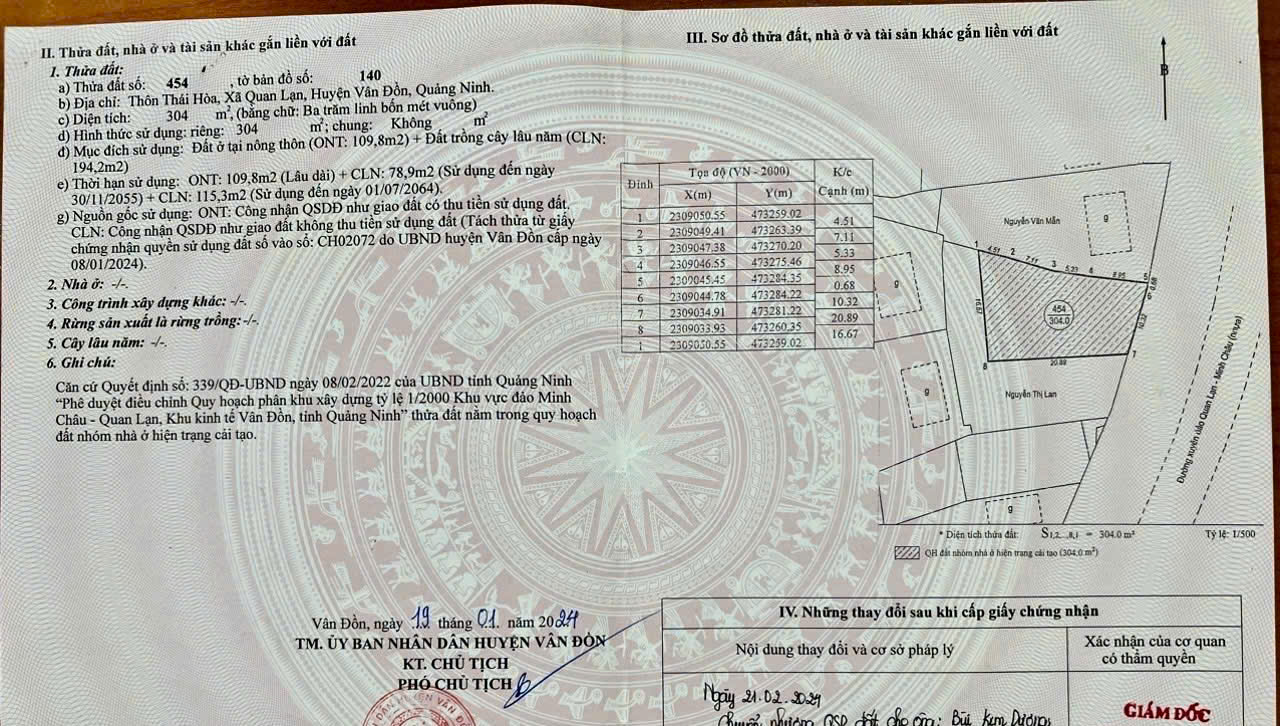 II. Thửa đất, nhà ở và tài sản khác gắn liền với đất
1. Thửa đất:
a) Thửa đất số: 454 , tờ bản đồ số: 140
b) Địa chỉ: Thôn Thái Hòa, Xã Quan Lạn, Huyện Vân Đồn, Quảng Ninh.
c) Diện tích: 304 m², (bằng chữ: Ba trăm linh bốn mét vuông)
d) Hình thức sử dụng: riêng: 304 m²; chung: Không m²
đ) Mục đích sử dụng: Đất ở tại nông thôn (ONT: 109,8m2) + Đất trồng cây lâu năm (CLN:
194,2m2)
e) Thời hạn sử dụng: ONT: 109,8m2 (Lâu dài) + CLN: 78,9m2 (Sử dụng đến ngày
30/11/2055) + CLN: 115,3m2 (Sử dụng đến ngày 01/07/2064).
g) Nguồn gốc sử dụng: ONT: Công nhận QSDĐ như giao đất có thu tiền sử dụng đất.
CLN: Công nhận QSDĐ như giao đất không thu tiền sử dụng đất (Tách thửa từ giấy
chứng nhận quyền sử dụng đất số vào sổ: CH02072 do UBND huyện Vân Đồn cấp ngày
08/01/2024).
2. Nhà ở: -/-.
3. Công trình xây dựng khác: -/-.
4. Rừng sản xuất là rừng trồng: -/-.
5. Cây lâu năm: -/-.
6. Ghi chú:
Căn cứ Quyết định số: 339/QĐ-UBND ngày 08/02/2022 của UBND tỉnh Quảng Ninh
“Phê duyệt điều chỉnh Quy hoạch phân khu xây dựng tỷ lệ 1/2000 Khu vực đảo Minh
Châu - Quan Lạn, Khu kinh tế Vân Đồn, tỉnh Quảng Ninh” thửa đất nằm trong quy hoạch
đất nhóm nhà ở hiện trạng cải tạo.
Vân Đồn, ngày 19 tháng 01 năm 2024
TM. ỦY BAN NHÂN DÂN HUYỆN VÂN ĐỒN
KT. CHỦ TỊCH
PHÓ CHỦ TỊCH
III. Sơ đồ thửa đất, nhà ở và tài sản khác gắn liền với đất
B
Đỉnh Tọa độ (VN - 2000) K/c
X(m) Y(m) Cạnh (m)
1 2309050.55 473259.02
4.51
2 2309049.41 473263.39
7.11
3 2309047.38 473270.20
5.33
4 2309046.55 473275.46
8.95
5 2309045.45 473284.35
0.68
6 2309044.78 473284.22
10.32
7 2309034.91 473281.22
20.89
8 2309033.93 473260.35
16.67
1 2309050.55 473259.02
Nguyễn Văn Mẫn
g
1 4.51 2 7.11 3 5.33 4 8.95 5
6 0.68
g
16.67
454
304.0
10.32
8 20.89 7
g
Nguyễn Thị Lan
Đường xuyên đảo Quan Lạn - Minh Châu (nhựa)
g
* Diện tích thửa đất: S1,2,...,8,1 = 304.0 m² Tỷ lệ: 1/500
QH đất nhóm nhà ở hiện trạng cải tạo (304.0 m²)
IV. Những thay đổi sau khi cấp giấy chứng nhận
Nội dung thay đổi và cơ sở pháp lý
Xác nhận của cơ quan
có thẩm quyền
Ngày 21.02.2024
Chuyển nhượng QSD đất cho ông: Bùi Kim Dương
GIÁM ĐỐC